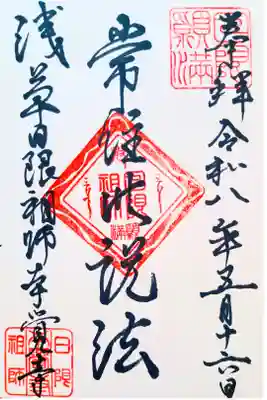 奉拝 令和八年五月十六日
常住此説法
浅草日限祖師本覚寺
日限
祖師